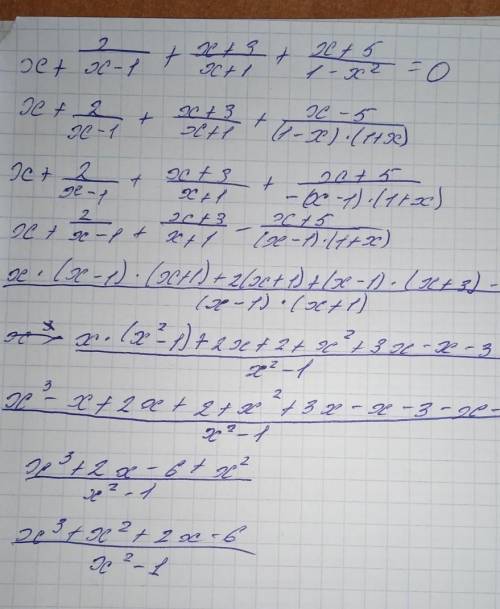 x + 2/(x-1) + (x+3)/(x+1) + (x+5)/(1-x²) = 0
x + 2/(x-1) + (x+3)/(x+1) + (x-5)/((1-x)·(1+x))
x + 2/(x-1) + (x+3)/(x+1) + (x+5)/(-(x-1)·(1+x))
x + 2/(x-1) + (x+3)/(x+1) - (x+5)/((x-1)·(1+x))
(x·(x-1)·(x+1)+2(x+1)+(x-1)·(x+3)-)/((x-1)·(x+1))
(x·(x²-1)+2x+2+x²+3x-x-3)/(x²-1)
(x³-x+2x+2+x²+3x-x-3-x-)/(x²-1)
(x³+2x-6+x²)/(x²-1)
(x³+x²+2x-6)/(x²-1)